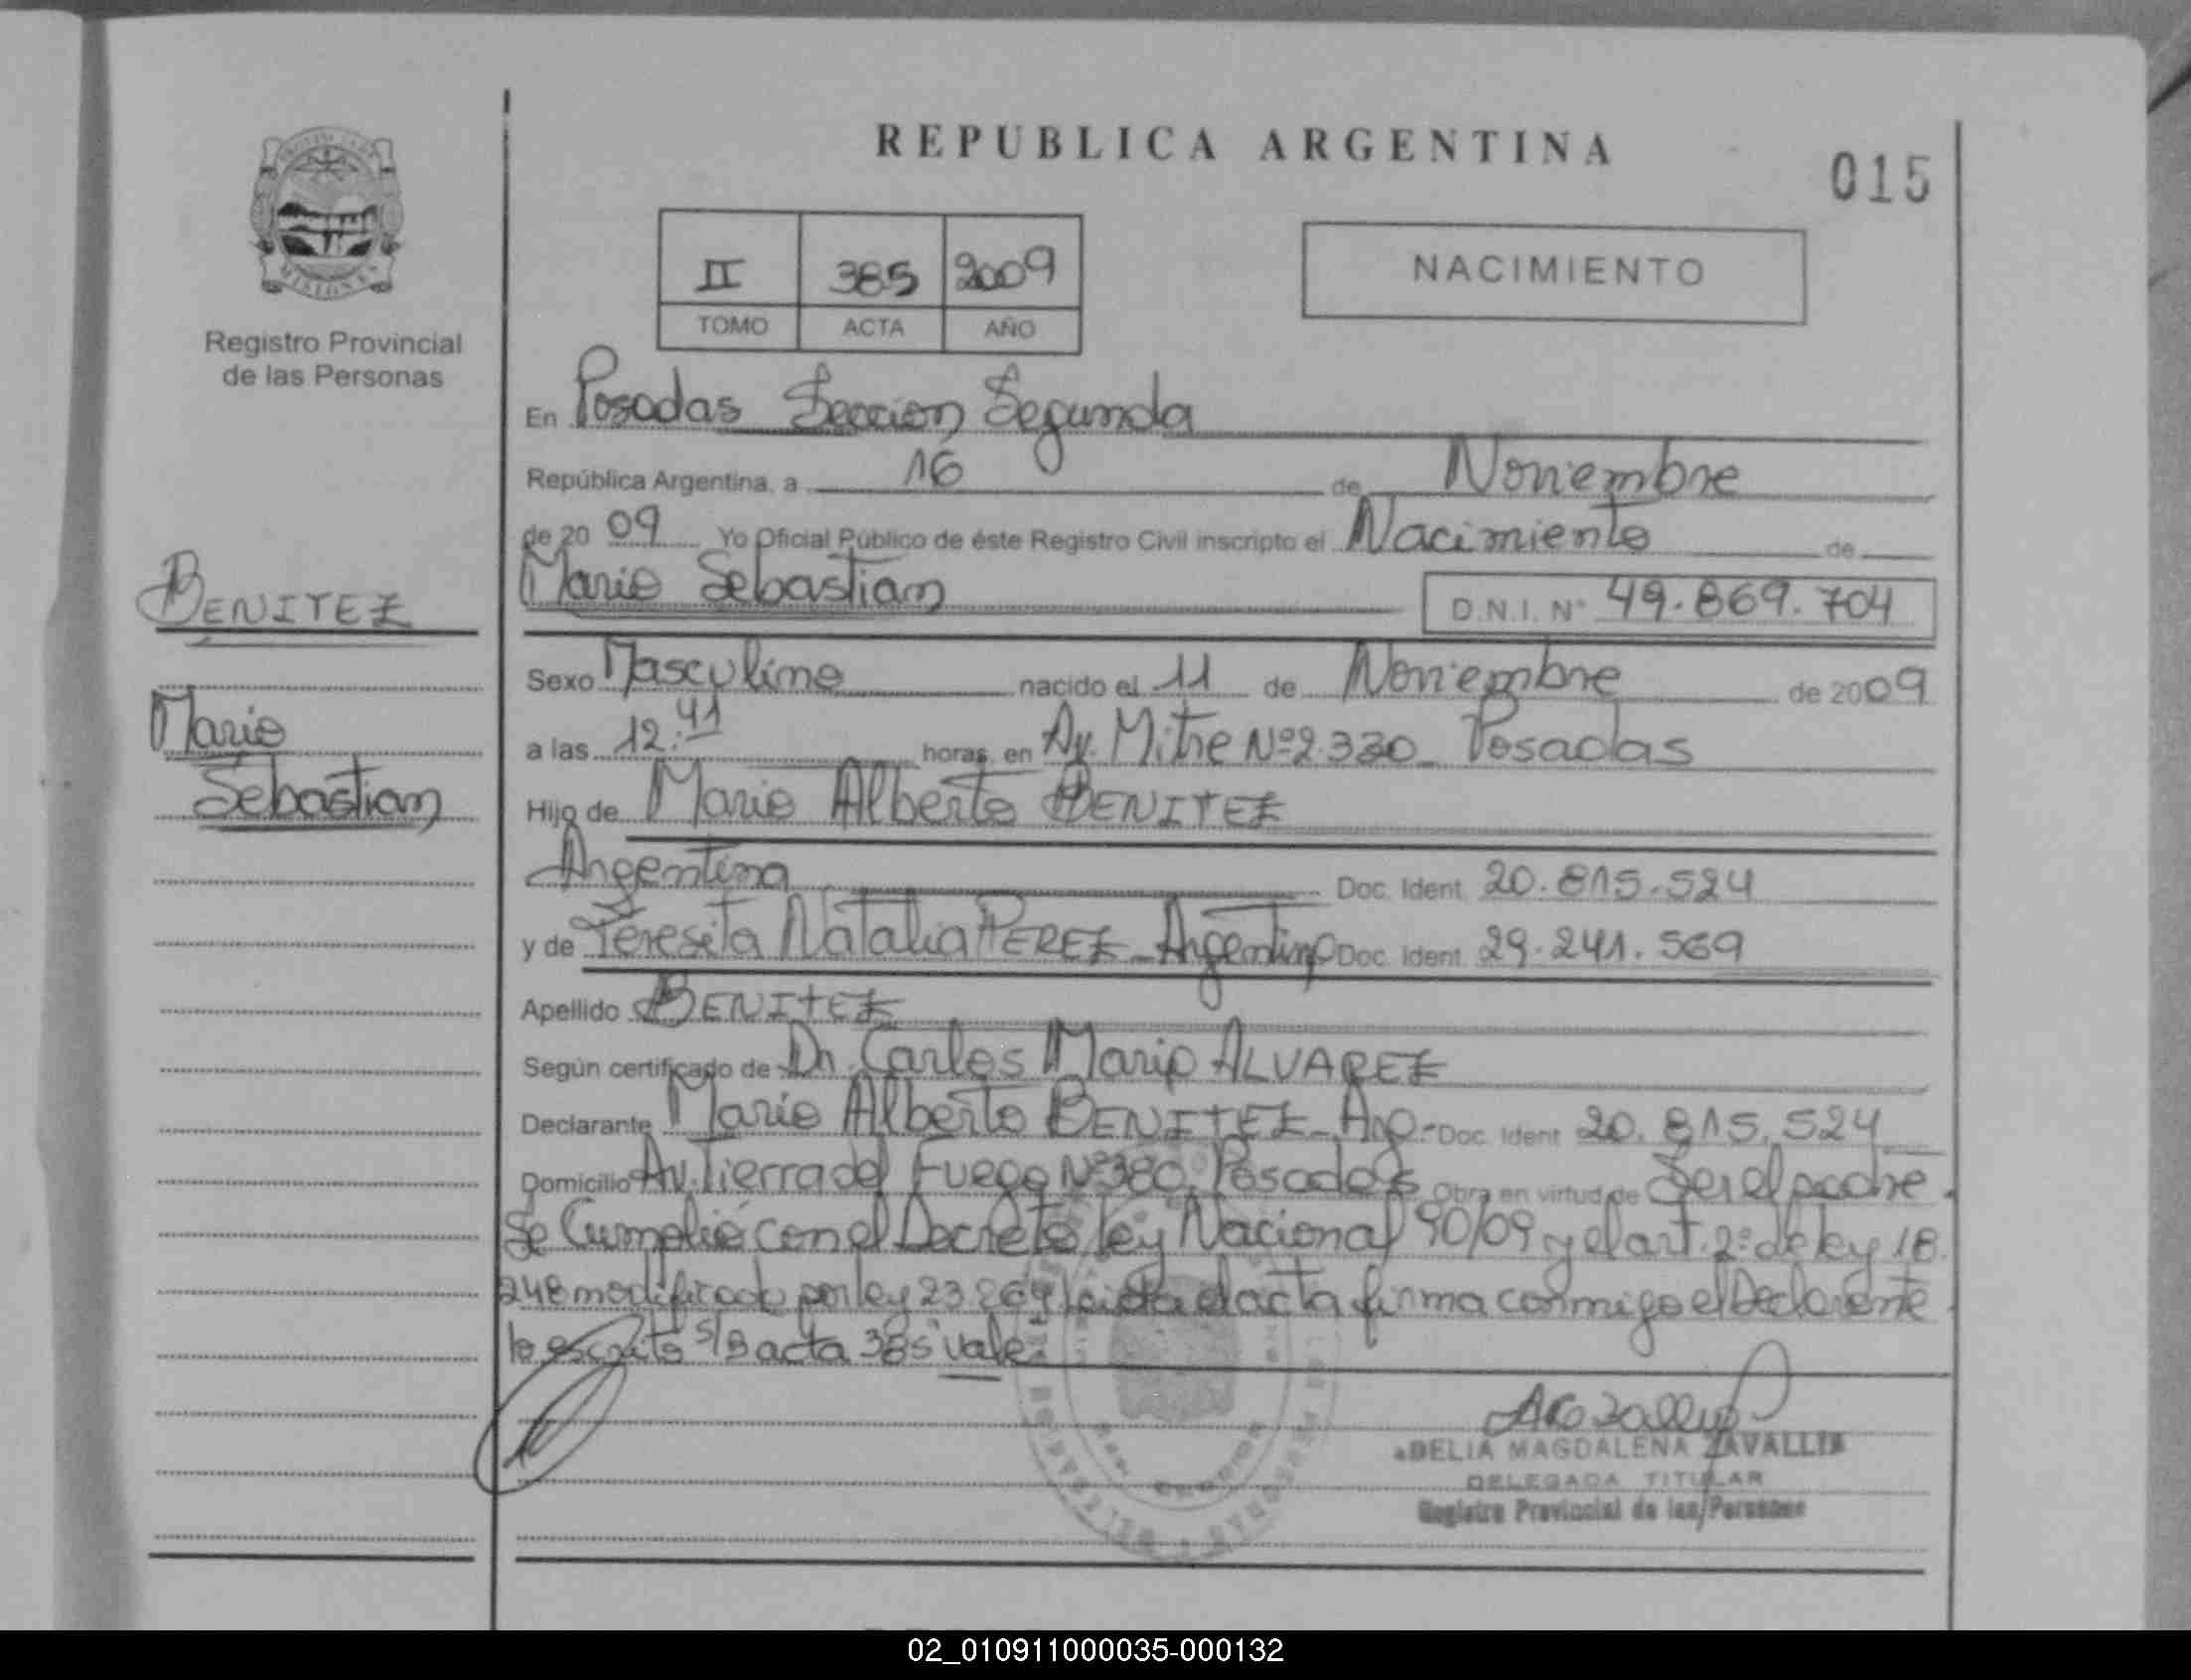 REPUBLICA ARGENTINA
015
II 385 2009
TOMO ACTA AÑO
NACIMIENTO
MISIONES
Registro Provincial
de las Personas
En Posadas Seccion Segunda
República Argentina, a 16 de Noviembre
de 20 09 Yo Oficial Público de éste Registro Civil inscripto el Nacimiento de
Mario Sebastian D.N.I. N° 49.869.704
BENITEZ
Mario
Sebastian
Sexo Masculino nacido el 11 de Noviembre de 2009
a las 12:41 horas, en Av. Mitre Nº 2.330 Posadas
Hijo de Mario Alberto BENITEZ
Argentina Doc. Ident. 20.815.524
y de Teresita Natalia PEREZ - Argentina Doc. Ident. 29.241.569
Apellido BENITEZ
Según certificado de Dr. Carlos Mario ALVAREZ
Declarante Mario Alberto BENITEZ - Arg.- Doc. Ident. 20.815.524
Domicilio Av. Tierra del Fuego Nº 380 Posadas Obra en virtud de Ser el padre.
Se Cumplió con el Decreto ley Nacional 90/09 y el art. 2º de ley 18.
248 modificado por ley 23.264 leida el acta firma conmigo el Declarante
lo escrito s/B acta 385 "vale"
DELIA MAGDALENA ZAVALLIA
DELEGADA TITULAR
Registro Provincial de las Personas
02_010911000035-000132